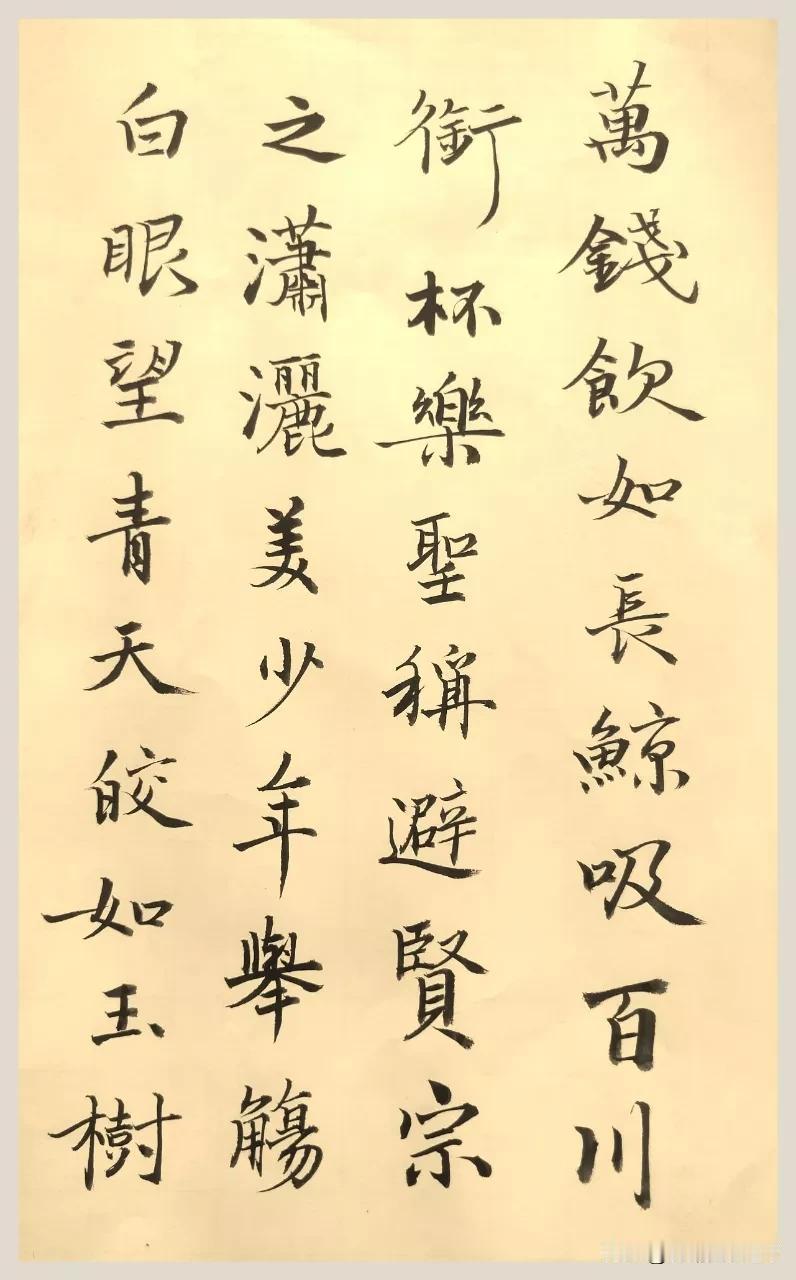 萬錢飲如長鯨吸百川
銜杯樂聖稱避賢宗
之瀟灑美少年舉觴
白眼望青天皎如玉樹